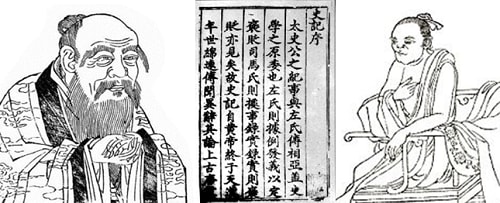 史記序
太史公之紀事與左氏傳相亞史
學之原委也左氏則據例發義以定
褒貶司馬氏則據事錄實錄實則褒
貶亦見矣故史記自黃帝終于天漢
年世綿遠傳聞異辭其論上古